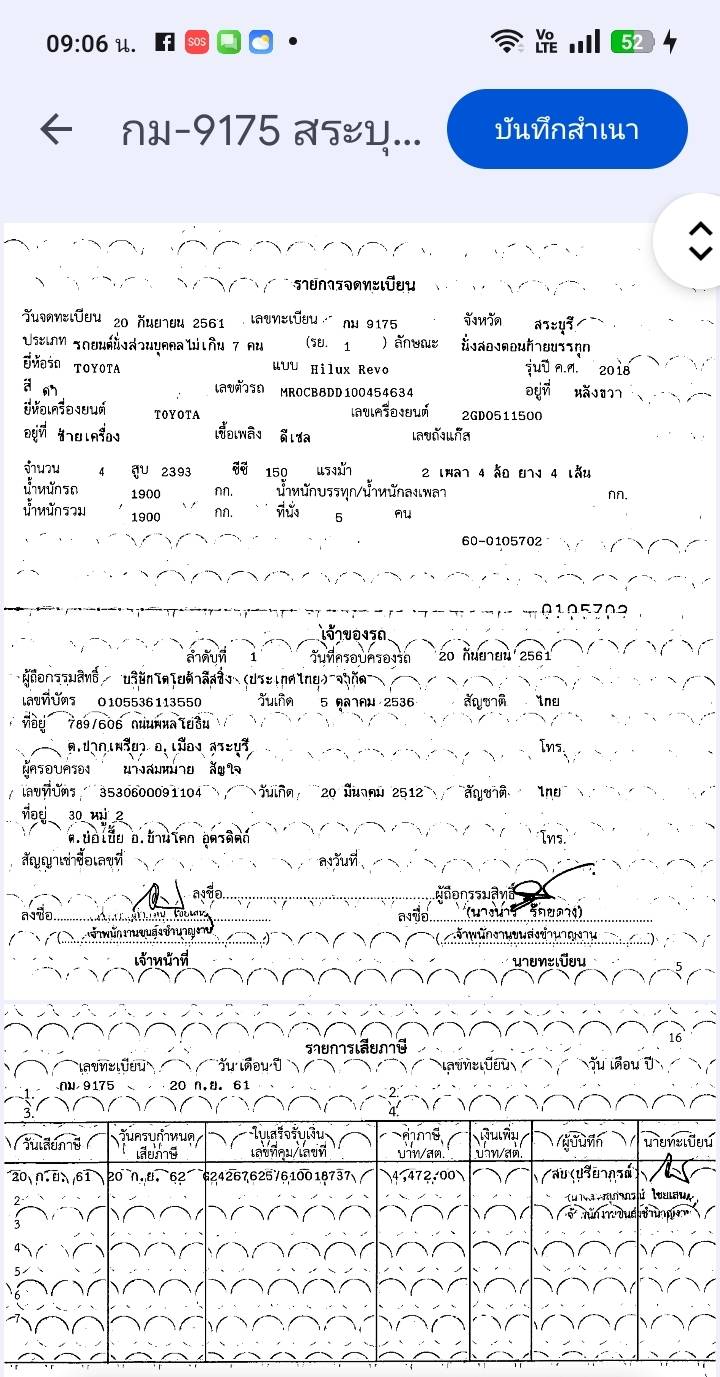 09:06 น. SOS Vo LTE 52
กม-9175 สระบุ... บันทึกสำเนา
รายการจดทะเบียน
วันจดทะเบียน 20 กันยายน 2561 เลขทะเบียน กม 9175 จังหวัด สระบุรี
ประเภท รถยนต์นั่งส่วนบุคคลไม่เกิน 7 คน (รย. 1 ) ลักษณะ นั่งสองตอนท้ายบรรทุก
ยี่ห้อรถ TOYOTA แบบ Hilux Revo รุ่นปี ค.ศ. 2018
สี ดำ เลขตัวรถ MR0CB8DD100454634 อยู่ที่ หลังขวา
ยี่ห้อเครื่องยนต์ TOYOTA เลขเครื่องยนต์ 2GD0511500
อยู่ที่ ซ้ายเครื่อง เชื้อเพลิง ดีเซล เลขถังแก๊ส
จำนวน 4 สูบ 2393 ซีซี 150 แรงม้า 2 เพลา 4 ล้อ ยาง 4 เส้น
น้ำหนักรถ 1900 กก. น้ำหนักบรรทุก/น้ำหนักลงเพลา กก.
น้ำหนักรวม 1900 กก. ที่นั่ง 5 คน
60-0105702
0105702
เจ้าของรถ
ลำดับที่ 1 วันที่ครอบครองรถ 20 กันยายน 2561
ผู้ถือกรรมสิทธิ์ บริษัทโตโยต้าลีสซิ่ง (ประเทศไทย) จำกัด
เลขที่บัตร 0105536113550 วันเกิด 5 ตุลาคม 2536 สัญชาติ ไทย
ที่อยู่ 789/606 ถนนพหลโยธิน
ต.ปากเพรียว อ.เมือง สระบุรี โทร.
ผู้ครอบครอง นางสมหมาย สัญใจ
เลขที่บัตร 3530600091104 วันเกิด 20 มีนาคม 2512 สัญชาติ ไทย
ที่อยู่ 30 หมู่ 2
ต.บ่อเบี้ย อ.บ้านโคก อุตรดิตถ์ โทร.
สัญญาเช่าซื้อเลขที่ ลงวันที่
ลงชื่อ ผู้ถือกรรมสิทธิ์
ลงชื่อ ลงชื่อ
เจ้าพนักงานขนส่งชำนาญงาน เจ้าพนักงานขนส่งชำนาญงาน
เจ้าหน้าที่ นายทะเบียน
5
16
รายการเสียภาษี
เลขทะเบียน วัน เดือน ปี เลขทะเบียน วัน เดือน ปี
1. กม 9175 20 ก.ย. 61 2.
3. 4.
วันเสียภาษี วันครบกำหนดเสียภาษี ใบเสร็จรับเงิน เลขที่คุม/เลขที่ ค่าภาษี บาท/สต. เงินเพิ่ม บาท/สต. ผู้บันทึก นายทะเบียน
20 ก.ย. 61 20 ก.ย. 62 62426762576/10018737 4,472.00
2
3
4
5
6
7